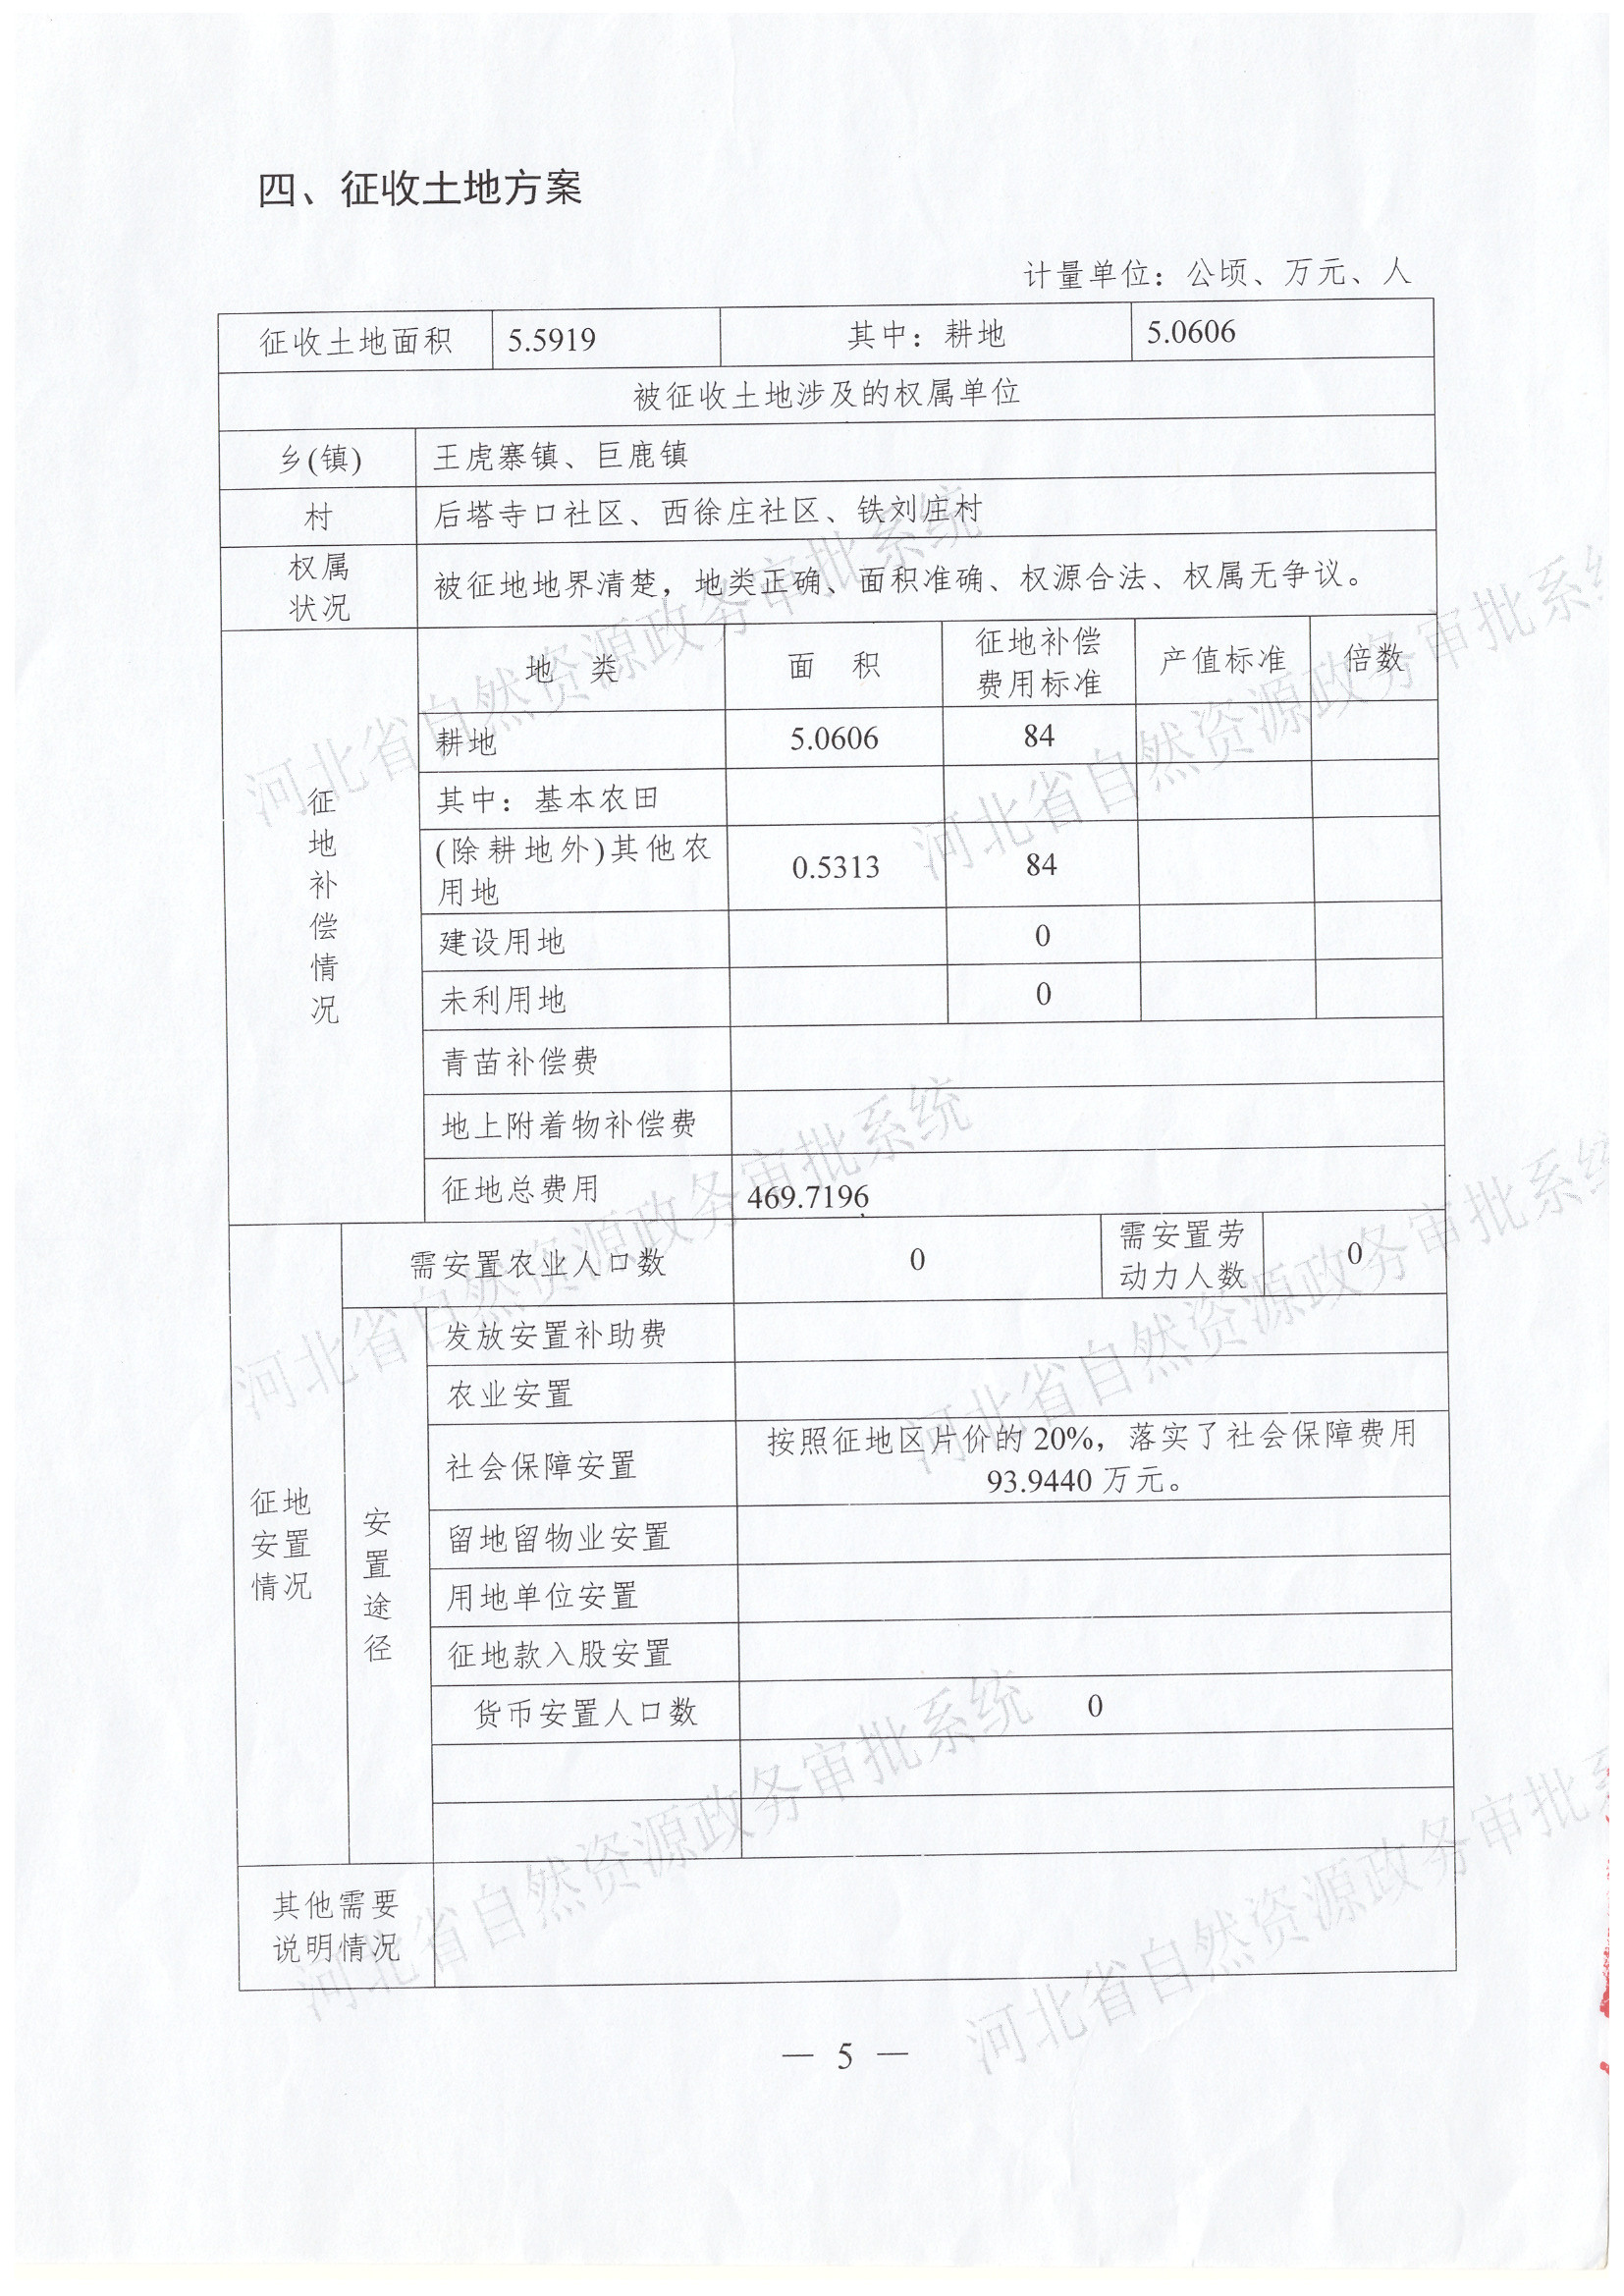 四、征收土地方案
计量单位：公顷、万元、人
征收土地面积 5.5919 其中：耕地 5.0606
被征收土地涉及的权属单位
乡(镇) 王虎寨镇、巨鹿镇
村 后塔寺口社区、西徐庄社区、铁刘庄村
权属
状况
被征地地界清楚，地类正确、面积准确、权源合法、权属无争议。
征地补偿情况
地 类 面 积 征地补偿
费用标准 产值标准 倍数
耕地 5.0606 84
其中：基本农田
(除耕地外)其他农
用地 0.5313 84
建设用地 0
未利用地 0
青苗补偿费
地上附着物补偿费
征地总费用 469.7196
征地
安置
情况
需安置农业人口数 0 需安置劳
动力人数 0
安置途径
发放安置补助费
农业安置
社会保障安置 按照征地区片价的 20%，落实了社会保障费用
93.9440 万元。
留地留物业安置
用地单位安置
征地款入股安置
货币安置人口数 0
其他需要
说明情况
— 5 —
河北省自然资源政务审批系统
河北省自然资源政务审批系统
河北省自然资源政务审批系统
河北省自然资源政务审批系统
河北省自然资源政务审批系统
河北省自然资源政务审批系